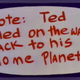 ote: Ted
ed on the wa
ack to his
ome Planet